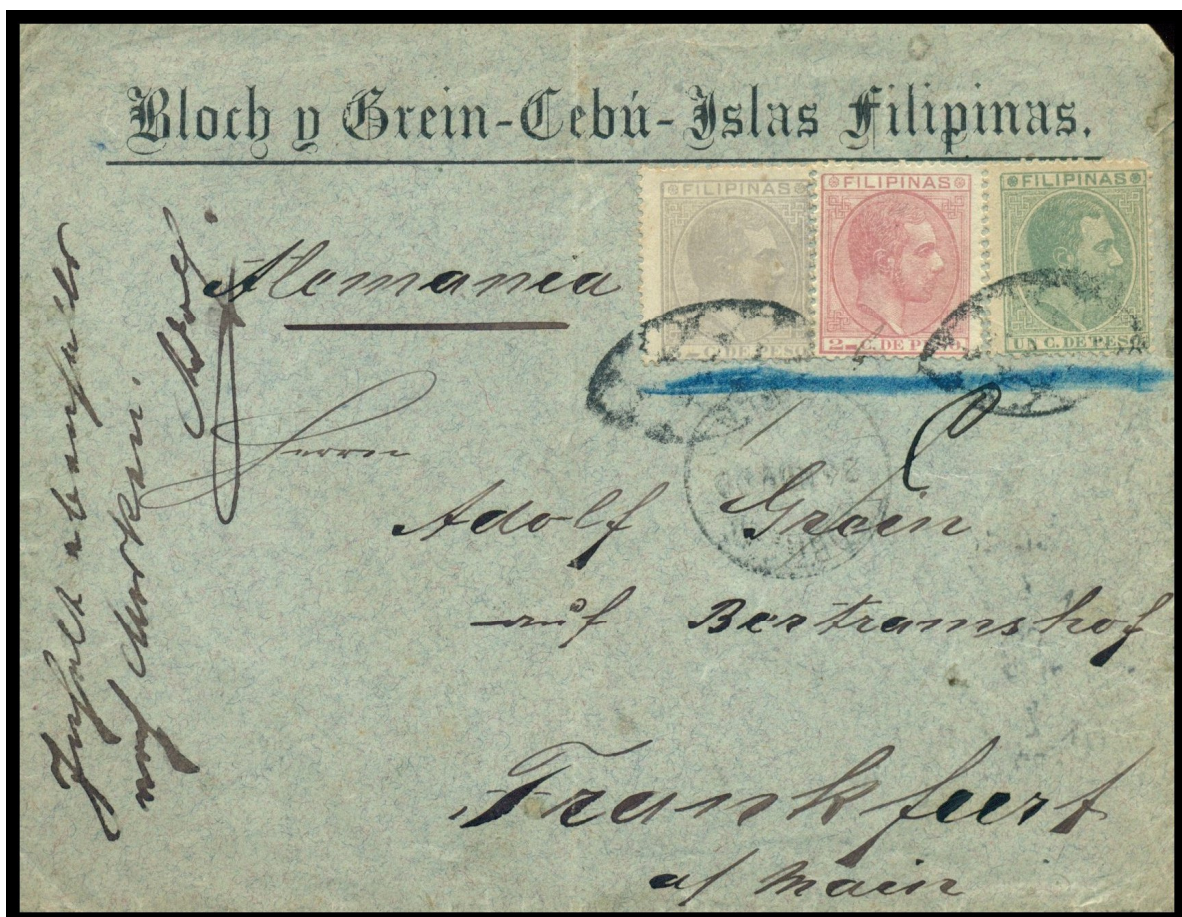 Bloch y Grein-Cebú-Islas Filipinas.
FILIPINAS
C. DE PESO
FILIPINAS
2-C. DE PESO.
FILIPINAS
UN C. DE PESO
Alemania
Herrn
Adolf Grein
auf Bertramshof
Frankfurt
a/ Main
Inhalt
nach